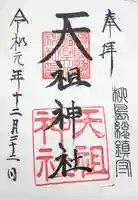 奉拝
桃島総鎮守
天祖神社
天祖
神社
令和元年十二月二十二日